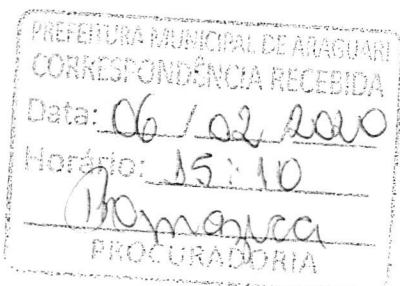 PREFEITURA MUNICIPAL DE ARAGUARI
CORRESPONDÊNCIA RECEBIDA
Data: 06 / 02 2020
Horário: 15:10
PROCURADORIA